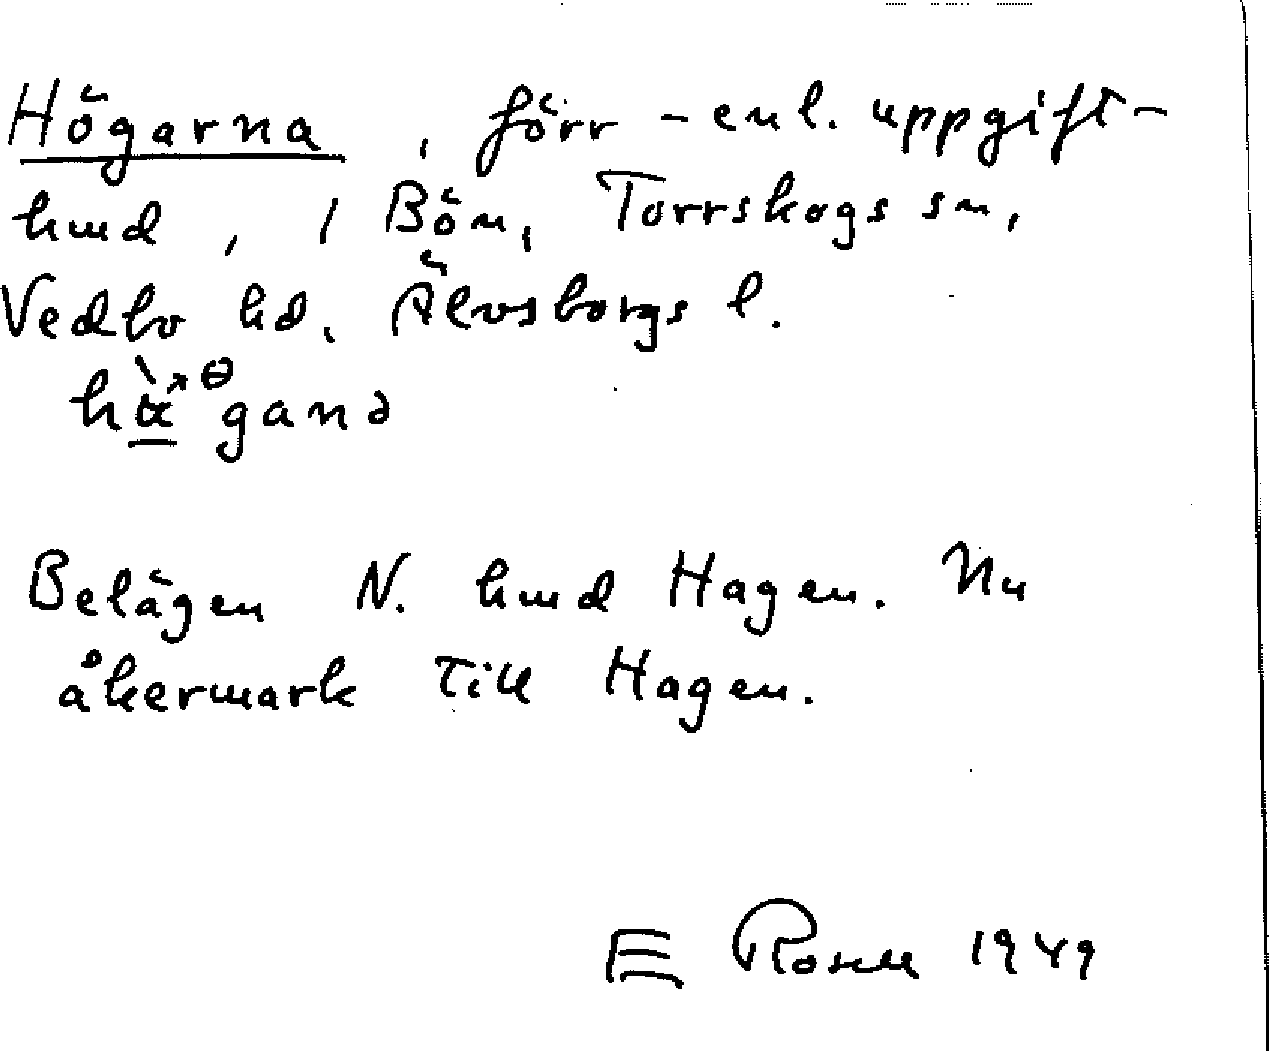 Högarna, förr – enl. uppgift –
hmd, i Bön, Torrskogs sn,
Vedbo hd, Älvsborgs l.
Belägen N. hmd Hagen. Nu
åkermark till Hagen.
E Rosell 1949